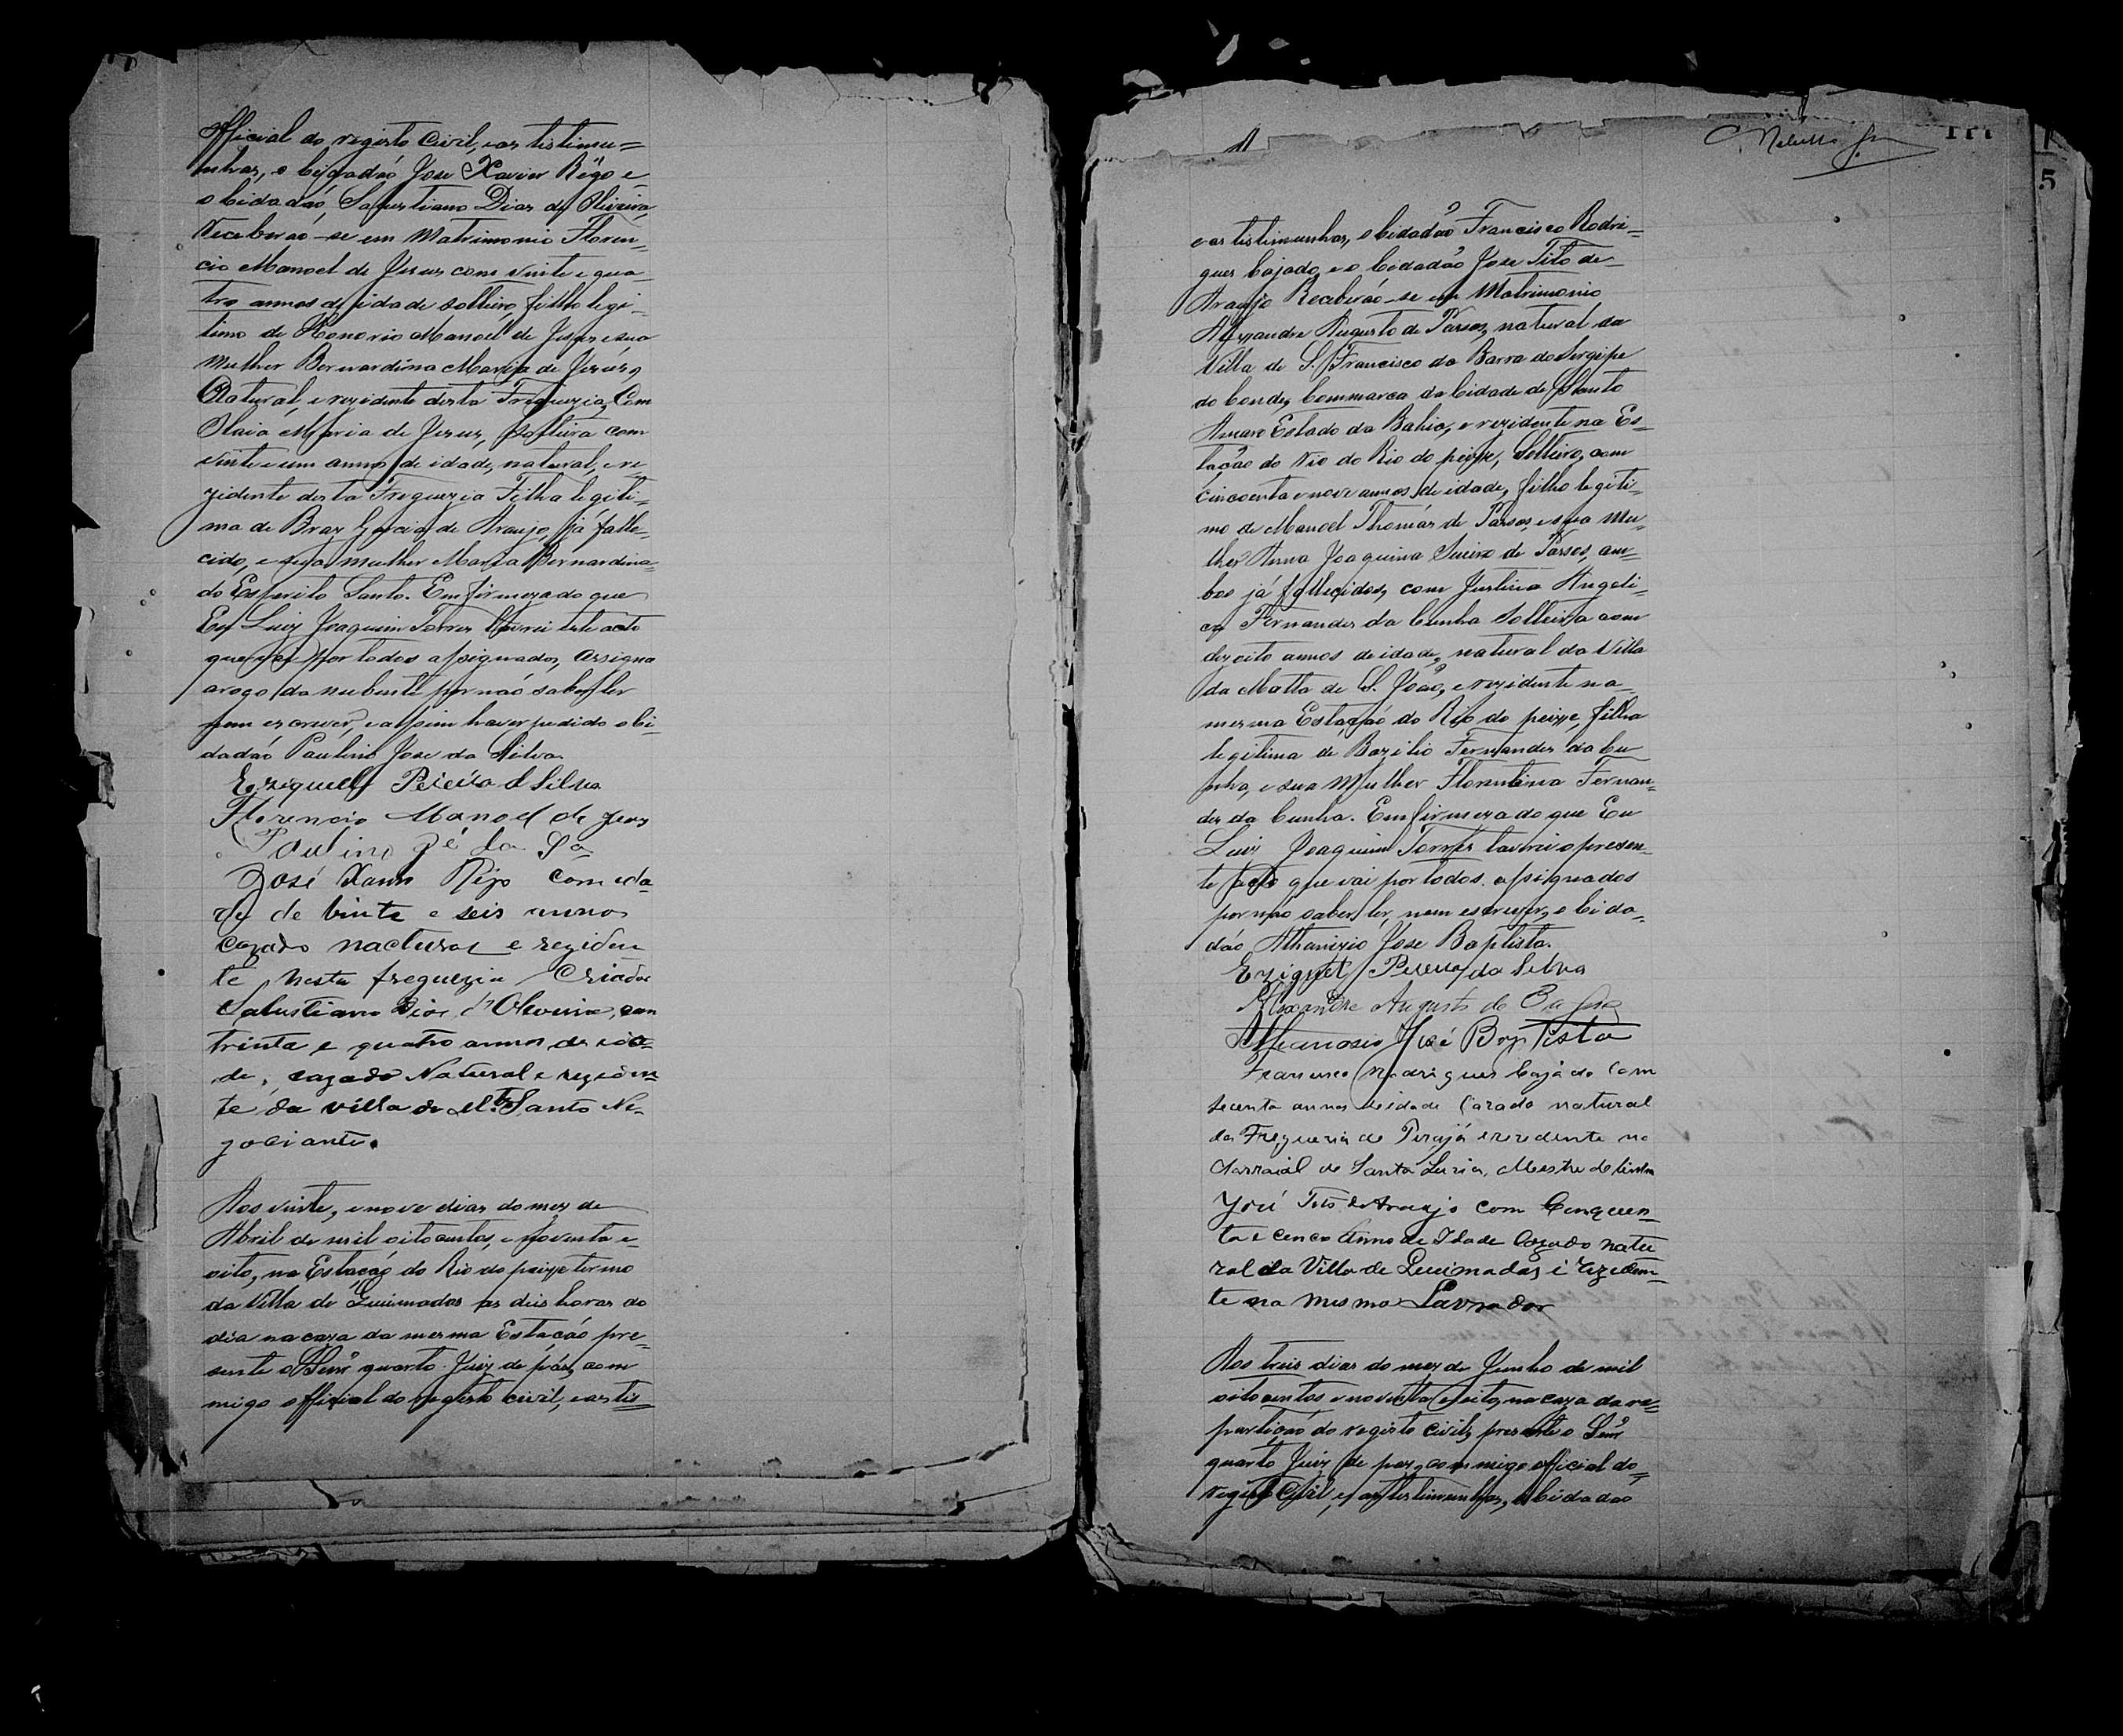 Official do registo Civil, e as tistimu=
nhas, o Cidadão Jose Xavier Rêgo e
o Cidadão Salustiano Dias de Oliveira,
Receberão-se em Matrimonio Floren-
cio Manoel de Jesus com vinte e qua-
tro annos de idade solteiro, filho legi-
timo de Honorio Manoel de Jesus e sua
Mulher Bernardina Maria de Jesús,
Natural, e rezidente desta Freguezia, Com
Maria de Jesus, Solteira com
vinte e um anno de idade, natural, e re
zidente desta Freguezia Filha legiti=
ma de Braz Garcia de Araujo, já falle-
cido, e sua mulher Maria Bernardina
do Espirito Santo. Em firmeza do que
Eu Luiz Joaquim Torres lavrei este acto
que vai por todos assignados, assigna
arogo da nubente por não saber ler
nem escrever, e assim haver pedido o Ci-
dadão Paulino Jose da Silva.
Eziquell Pereira d Silva
Florencio Manoel de Jesus
Paulino Jé da Sa
José Xavier Rejo com eda
de de vinte e seis annos
cazado nactural e reziden
te nesta freguezia Criador
Salustiano Dias d'Oliveira, com
trinta e quatro annos de ida=
de, cazado Natural e reziden
te da villa do Mte Santo Ne-
gociante.
Aos vinte, e nove dias do mez de
Abril de mil oitocentos, e noventa e-
oito, na Estação do Rio do peixe termo
da Villa de Queimadas as deis horas do
dia na caza da mesma Estação pre-
sente o Senr quarto Juiz de páz, com
migo official do registo civil, e as tis=
C. Rebello Jr
111
5
e as tistimunhas, o Cidadão Francisco Rodri-
gues Cajado, e o Cidadão Jose Tito de-
Araujo Receberão-se em Matrimonio
Alexandre Augusto de Passos, natural da
Villa de S. Francisco da Barra do Sergipe
do Conde, Commarca da Cidade de Santo
Amaro Estado da Bahia, e rezidente na Es-
tação do Rio do peixe, Solteiro, com
cincoenta e nove annos de idade, filho legiti-
mo de Manoel Thomás de Passos, e sua Mu-
lher Anna Joaquina de Passos, am-
bos já fallecidos, com Justina Angeli-
ca Fernandes da Cunha Solteira com
dezoito annos de idade, natural da Villa
da Matta de S. João, e rezidente na-
mesma Estação do Rio do peixe, filha
legitima de Bazilio Fernandes da Cu
nha, e sua Mulher Florentina Fernan-
des da Cunha. Em firmeza do que Eu
Luiz Joaquim Torres lavrei o presen-
te acto que vai por todos assignados
por não saber ler, nem escrever, o Cida-
dão Athanizio Jose Baptista.
Eziquel Pereira da Silva
Alexandre Augusto de Passos
Athanasio José Baptista
Francisco Rodrigues Cajado Com
secenta annos de idade Cazado natural
da Freguezia de Pirajá e rezedente no
Arraial de Santa Luzia, Mestre de linha
José Tito de Araujo com Cenquen-
ta e cenco Anno de Idade Cazado natu
ral da Villa de Queimadas i Rezeden-
te na mesma Lavrador
Aos treis dias do mez de Junho de mil
oitocentos e noventa e oito, na caza da re=
partição do registo civil, presente o Senr
quarto Juiz de paz, commigo official do=
registo Civil, e as tistimunhas, o Cidadão